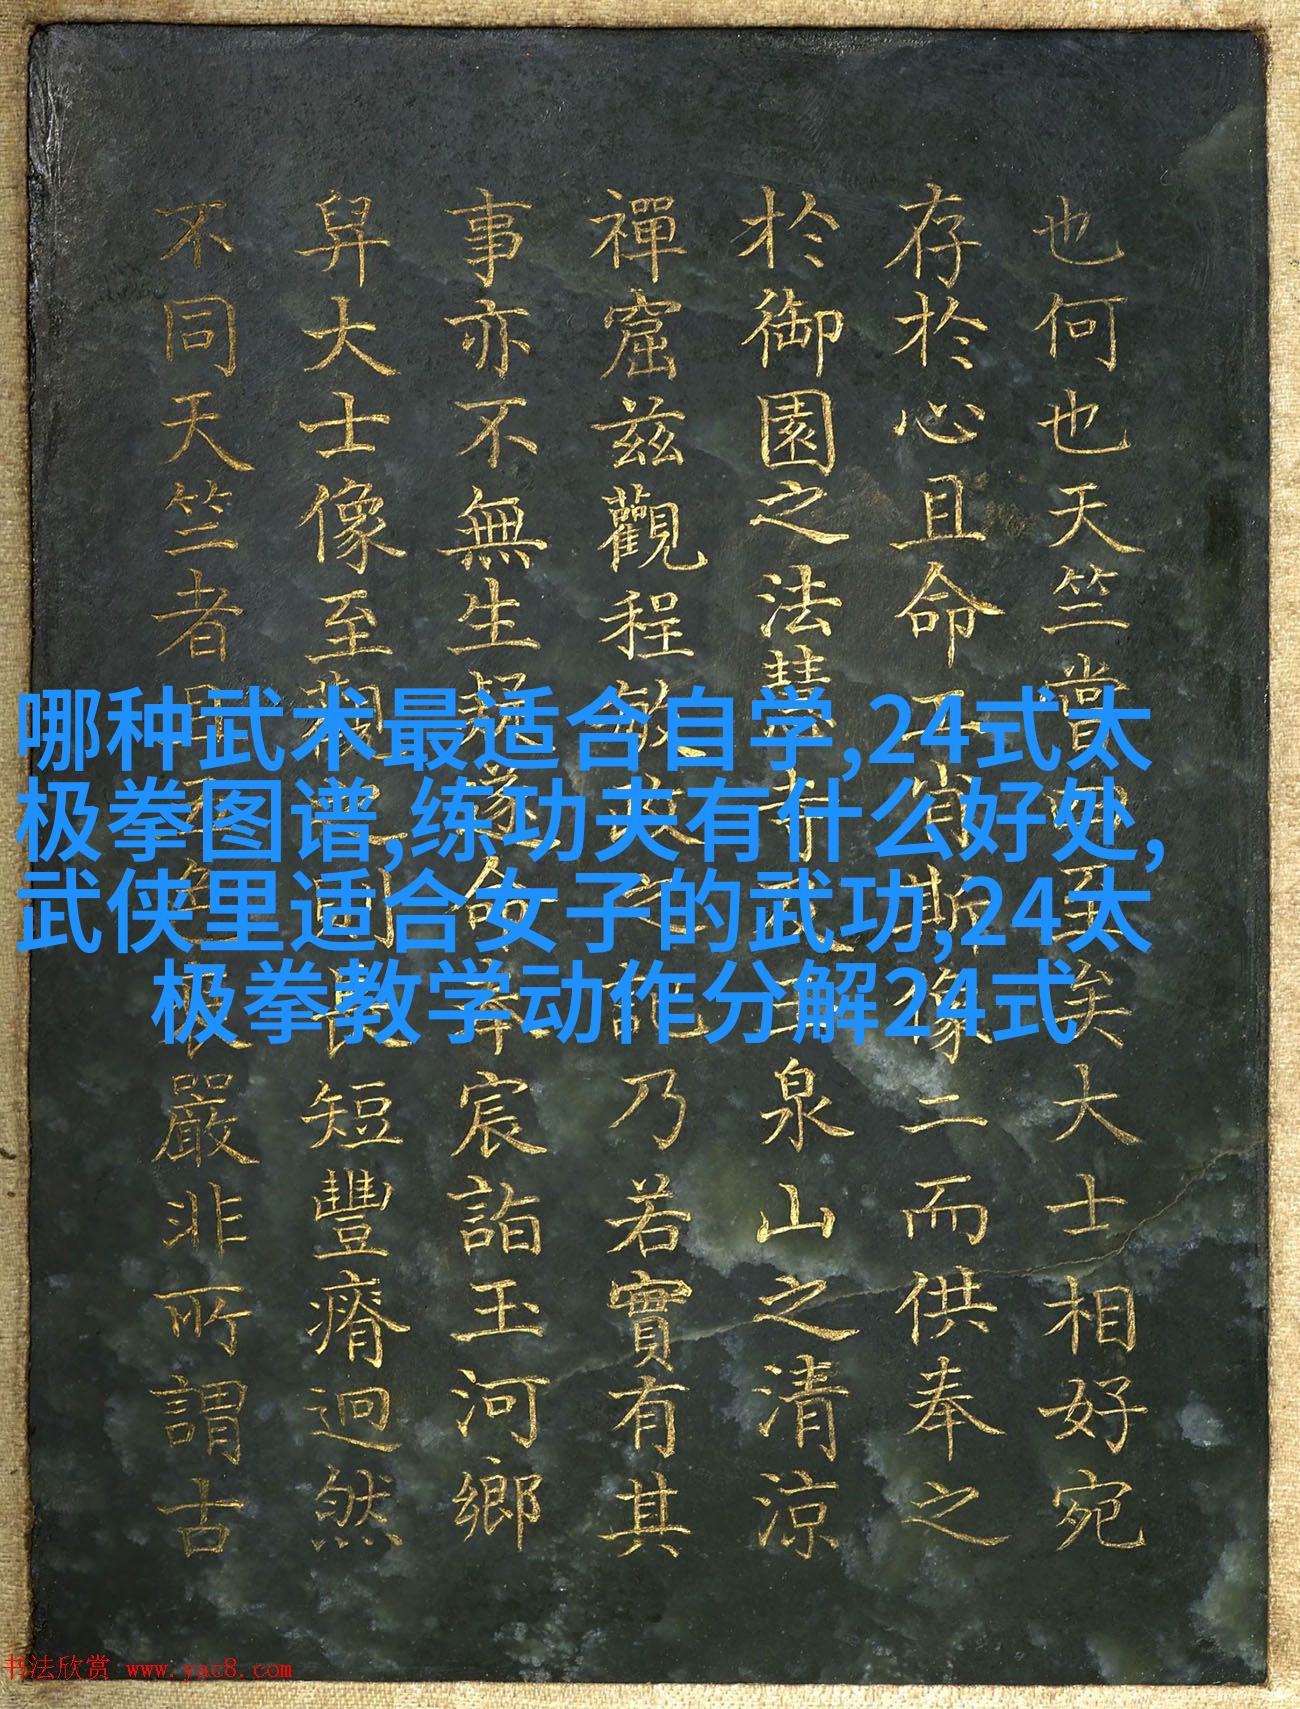 也何也天竺 矣大士相好宛
存於心且命工肖斯像二而供奉之
於御園之法慧寺 玉泉山之清涼
禪窟茲觀程 之記乃若實有其
事亦不無生疑遂命奉宸詣玉河鄉
舁大士像至觀 長短豐瘠迥然
不同天竺者 嚴非所謂古
哪种武术最适合自学,24式太
极拳图谱,练功夫有什么好处,
武侠里适合女子的武功,24太
极拳教学动作分解24式
书法欣赏 www.yac8.com